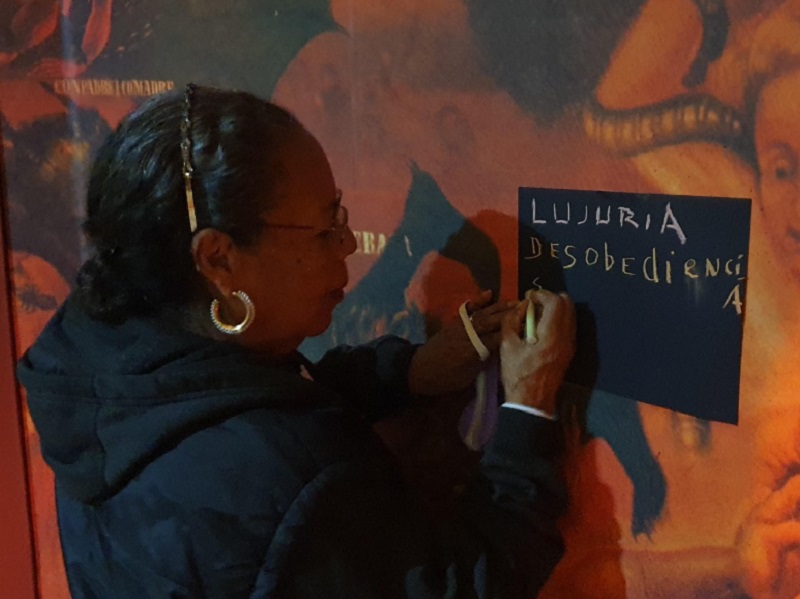 COMPADRE COMADRE
LUJURIA
DESObEDIENCI
A
S